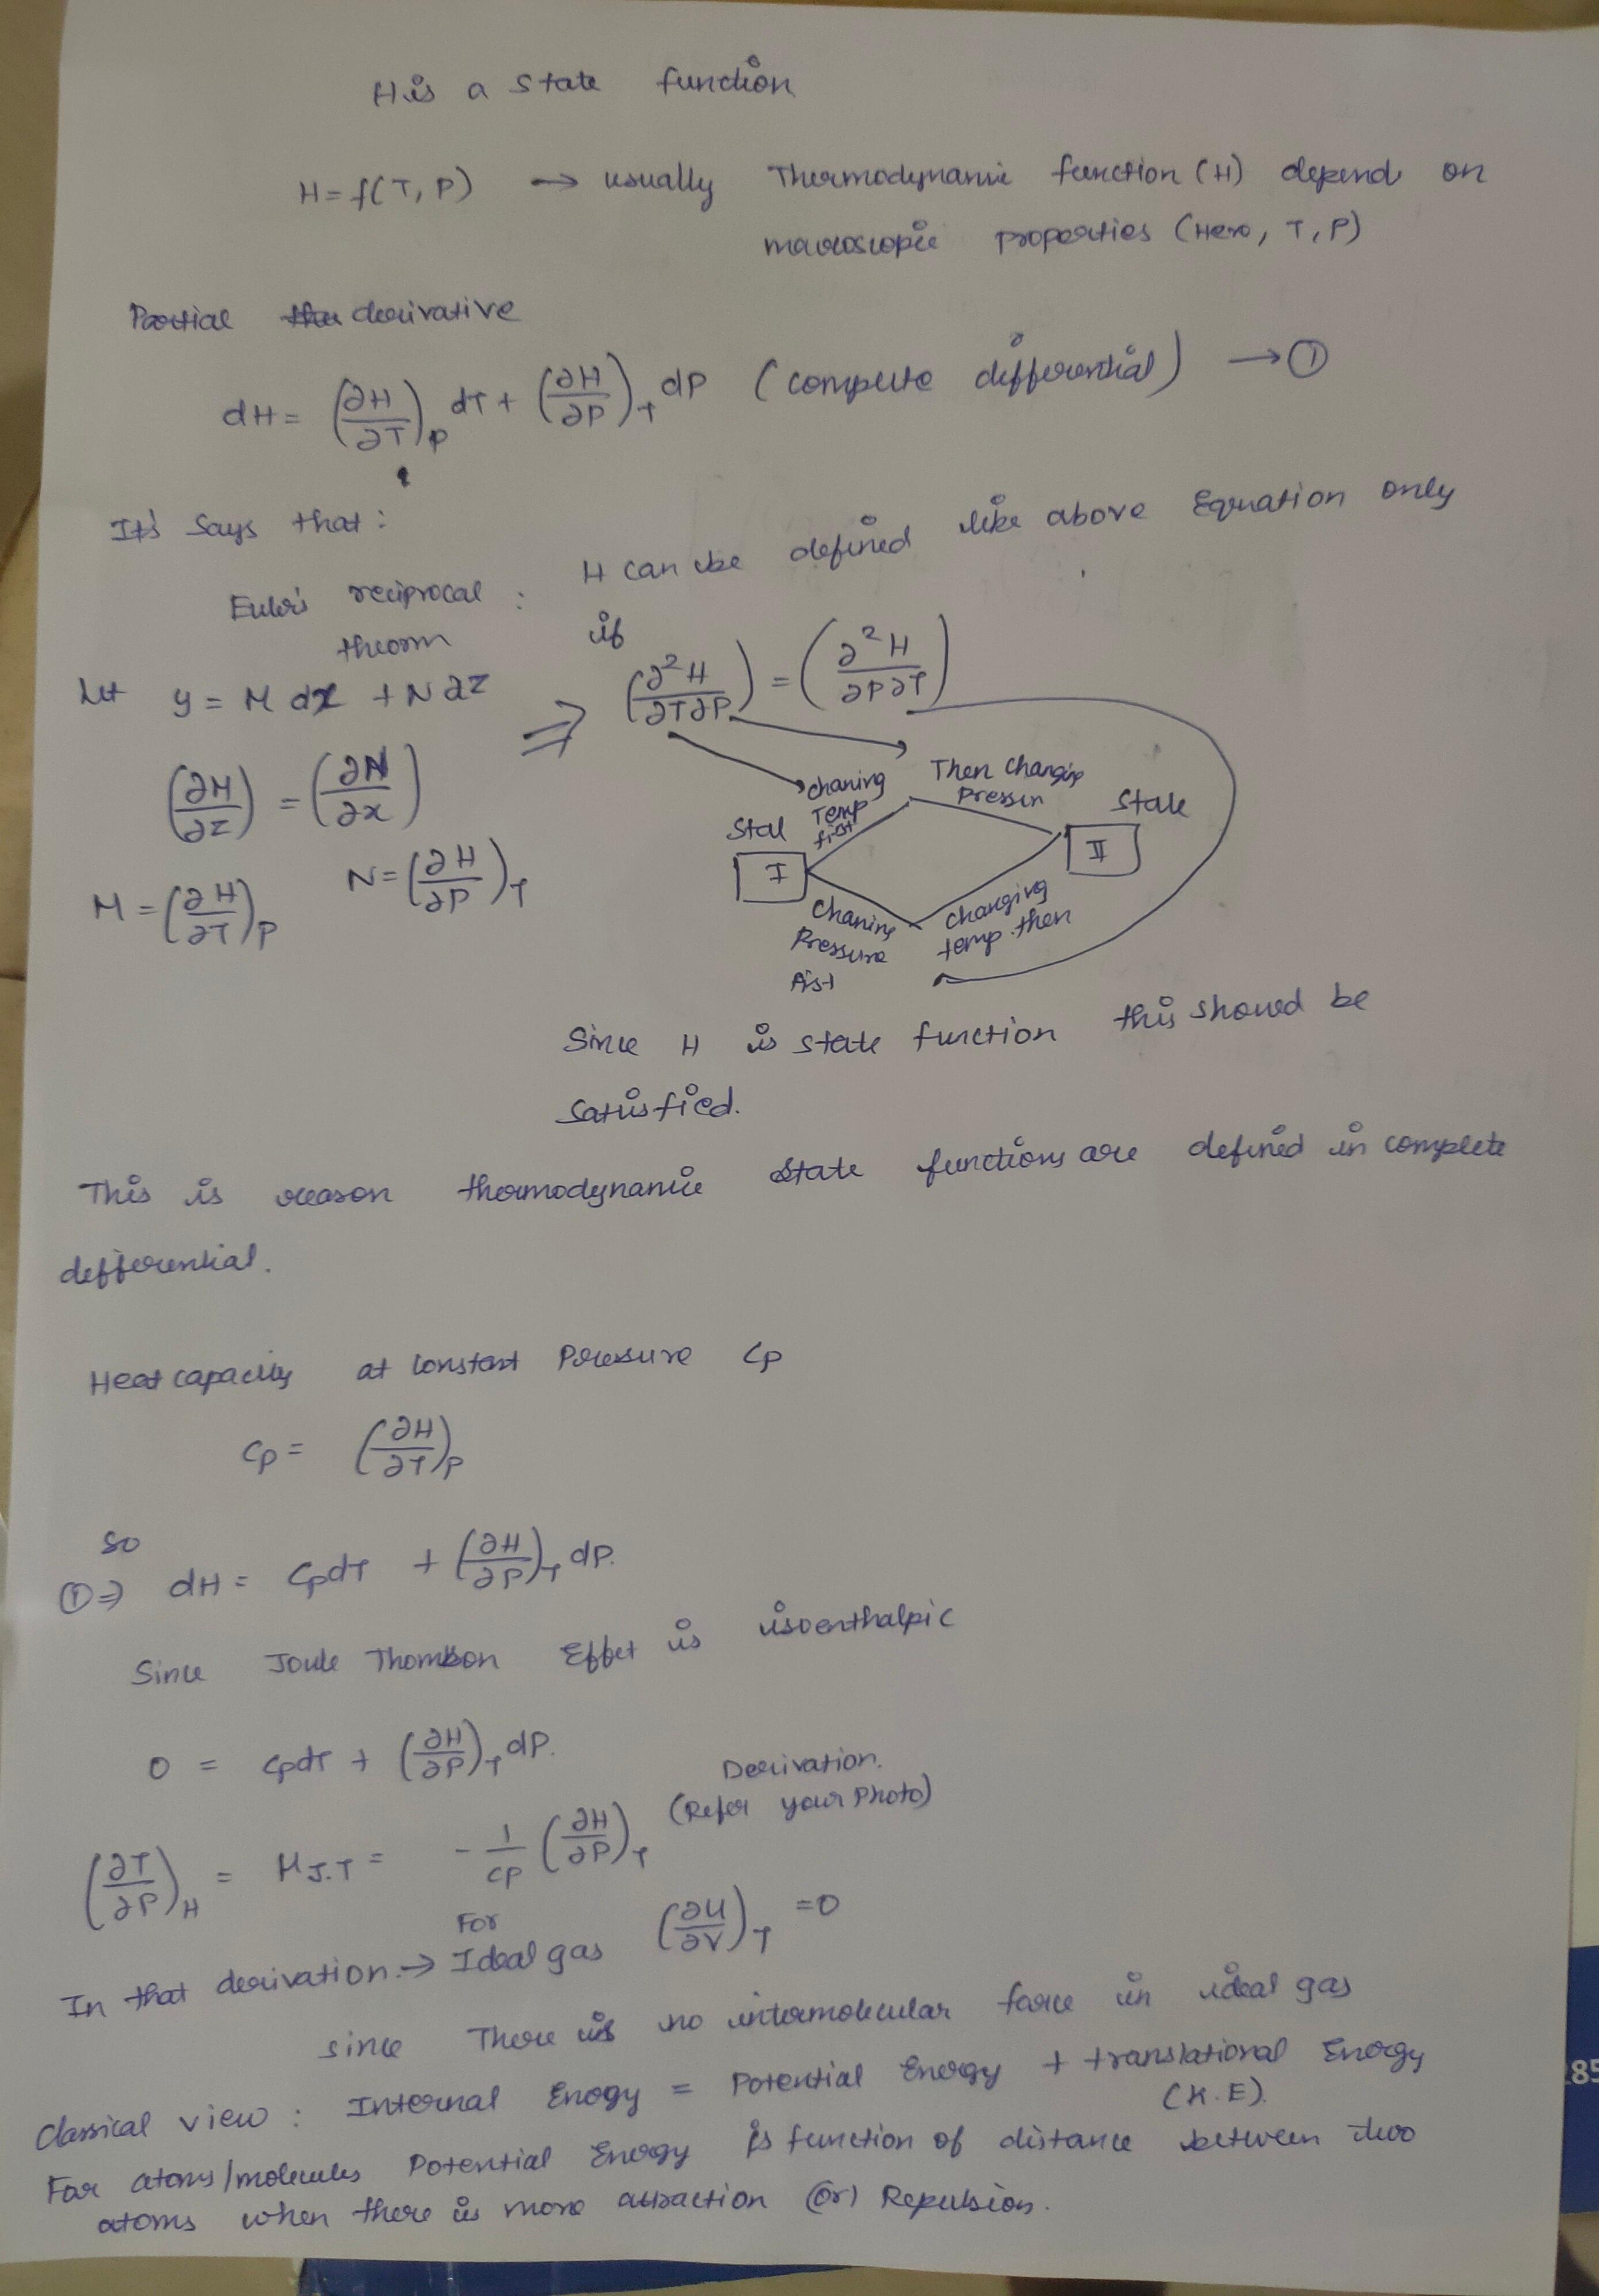 H is a state function
H = f(T, P) → usually Thermodynamic function (H) depend on
macroscopic properties (Here, T, P)
Partial derivative
dH = (∂H/∂T)_P dT + (∂H/∂P)_T dP (complete differential) → ①
It's says that :
Euler's reciprocal : H can be defined like above Equation only
theorm if
Let y = M dx + N dz ⇒ (∂²H/∂T∂P) = (∂²H/∂P∂T)
(∂M/∂z) = (∂N/∂x)
M = (∂H/∂T)_P N = (∂H/∂P)_T
Chaning Temp first
Then Changing Pressur
Stat I
State II
Chaning Pressure first
Changing temp. then
Since H is state function this should be
satisfied.
This is reason thermodynamic state functions are defined in complete
defferential.
Heat capacity at constant Pressure Cp
Cp = (∂H/∂T)_P
so
①⇒ dH = CpdT + (∂H/∂P)_T dP.
Since Joule Thomson Effet is isoenthalpic
0 = CpdT + (∂H/∂P)_T dP.
Derivation.
(Refer your Photo)
(∂T/∂P)_H = μ_J.T = - 1/CP (∂H/∂P)_T
In that derivation. → For Ideal gas (∂U/∂V)_T = 0
since There is no intermolecular force in ideal gas
Classical view : Internal Enogy = Potential Energy + translational Energy
(K.E).
For atoms/molecules Potential Energy is function of distance between two
atoms when there is more attraction (or) Repulsion.
85